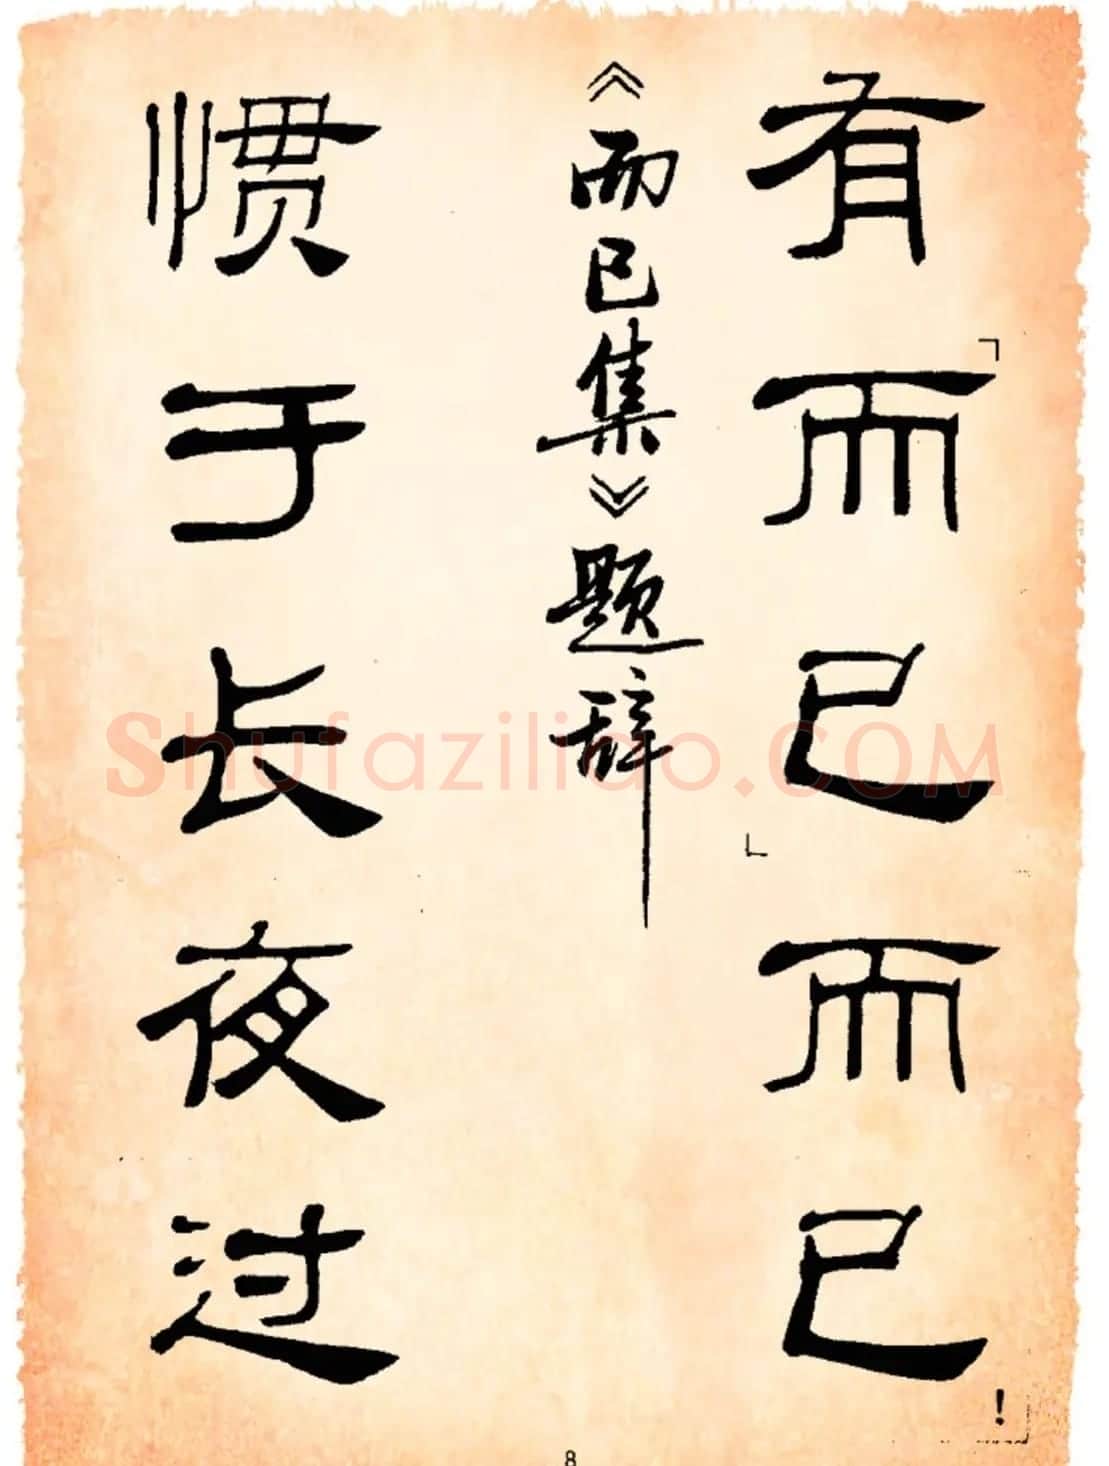 有「而已」而已！
《而已集》题辞
惯于长夜过
shufaziliao.COM
8